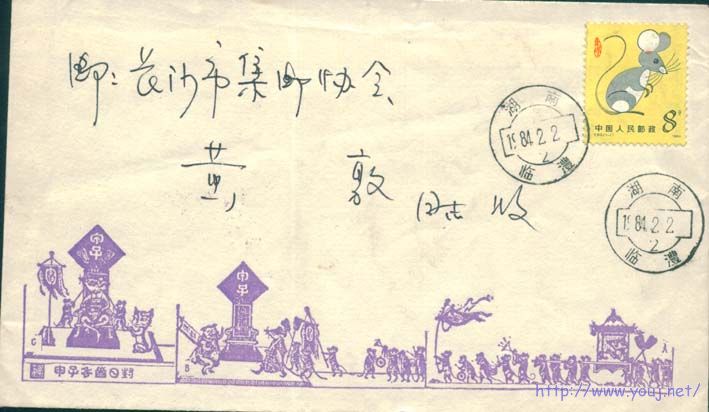 邮：长沙市集邮协会
黄 敦 同志收
中国人民邮政
8分
湖南
1984.2.2
2
临澧
湖南
1984.2.2
2
临澧
甲子
甲子
http://www.youj.net/